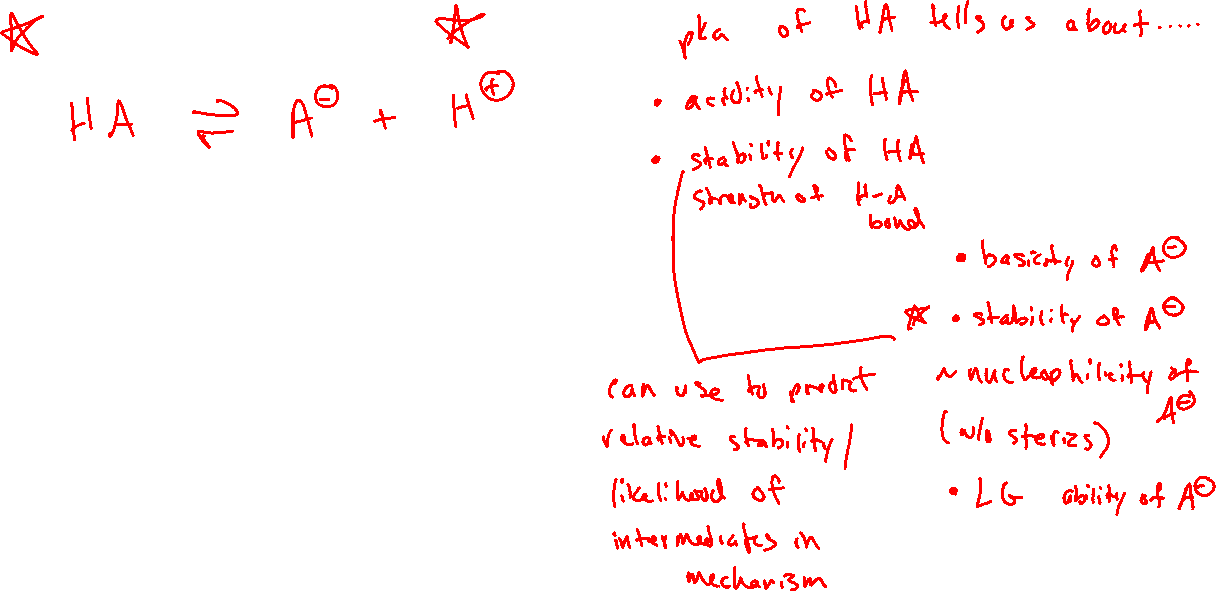 HA ⇌ A⊖ + H⊕
pka of HA tells us about.....
• acidity of HA
• stability of HA
strength of H-A
bond
• basicity of A⊖
☆ • stability of A⊖
~ nucleophilicity of
A⊖
(w/o sterics)
• LG ability of A⊖
can use to predict
relative stability/
likelihood of
intermediates in
mechanism